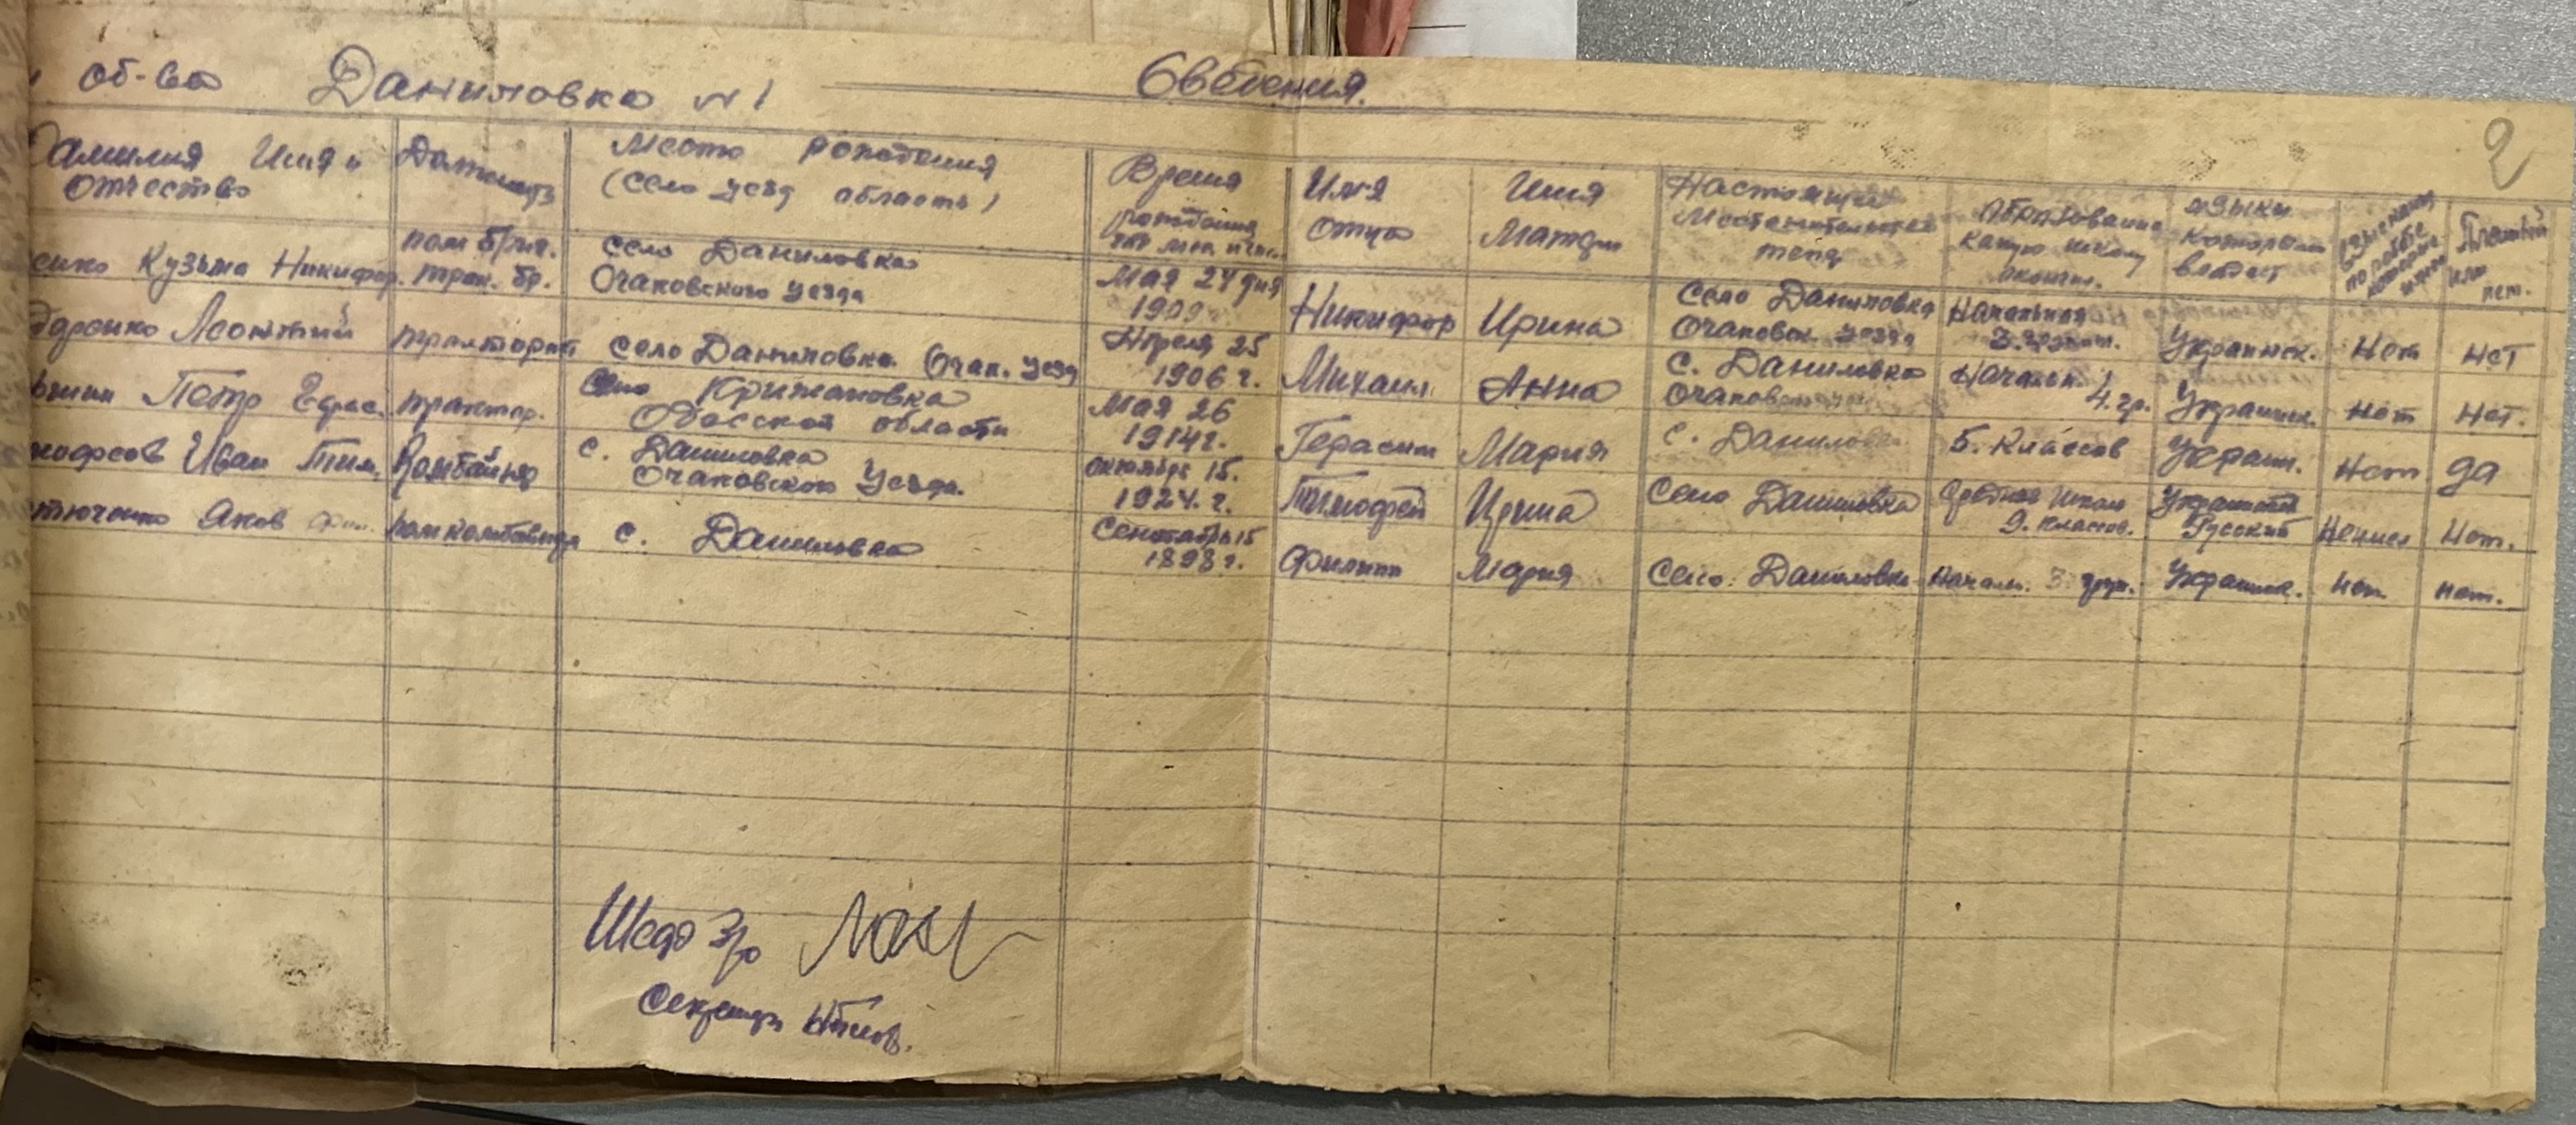 об-ва Даниловка №1 Сведения.
2
Фамилия Имя и отчество Должность Место рождения (село уезд область) Время рождения год мес. и чис. Имя отца Имя Матери Настоящее Местожительство Образование какую школу окончил Языки которыми владеет Пленный или нет.
енко Кузьма Никифор. пом бриг. трак. бр. Село Даниловка Очаковского уезда Мая 27 дня 1909 Никифор Ирина Село Даниловка Очаковск. уезда Начальная 3. Украинск. Нет Нет
Леонтий тракторист село Даниловка Очак. уезд Апреля 25 1906 г. Михаил Анна С. Даниловка Очаковск Начальн. 4. гр. Украинск. Нет Нет.
Петр Герас. трактор. Село Крижановка Одесской области Мая 26 1914 г. Герасим Мария С. Даниловка 5. классов Украин. Нет да
Иван Тим. Комбайнер с. Даниловка Очаковского Уезда. октября 15. 1924. г. Тимофей Ирина Село Даниловка Средняя Школа 9. классов. Украинский Русский Немец Нет.
Яков Фил. пом комбайнера с. Даниловка Сентября 15 1898 г. Филипп Мария Село. Даниловка Начальн. 3 груп. Украинск. нет нет.
Секретарь